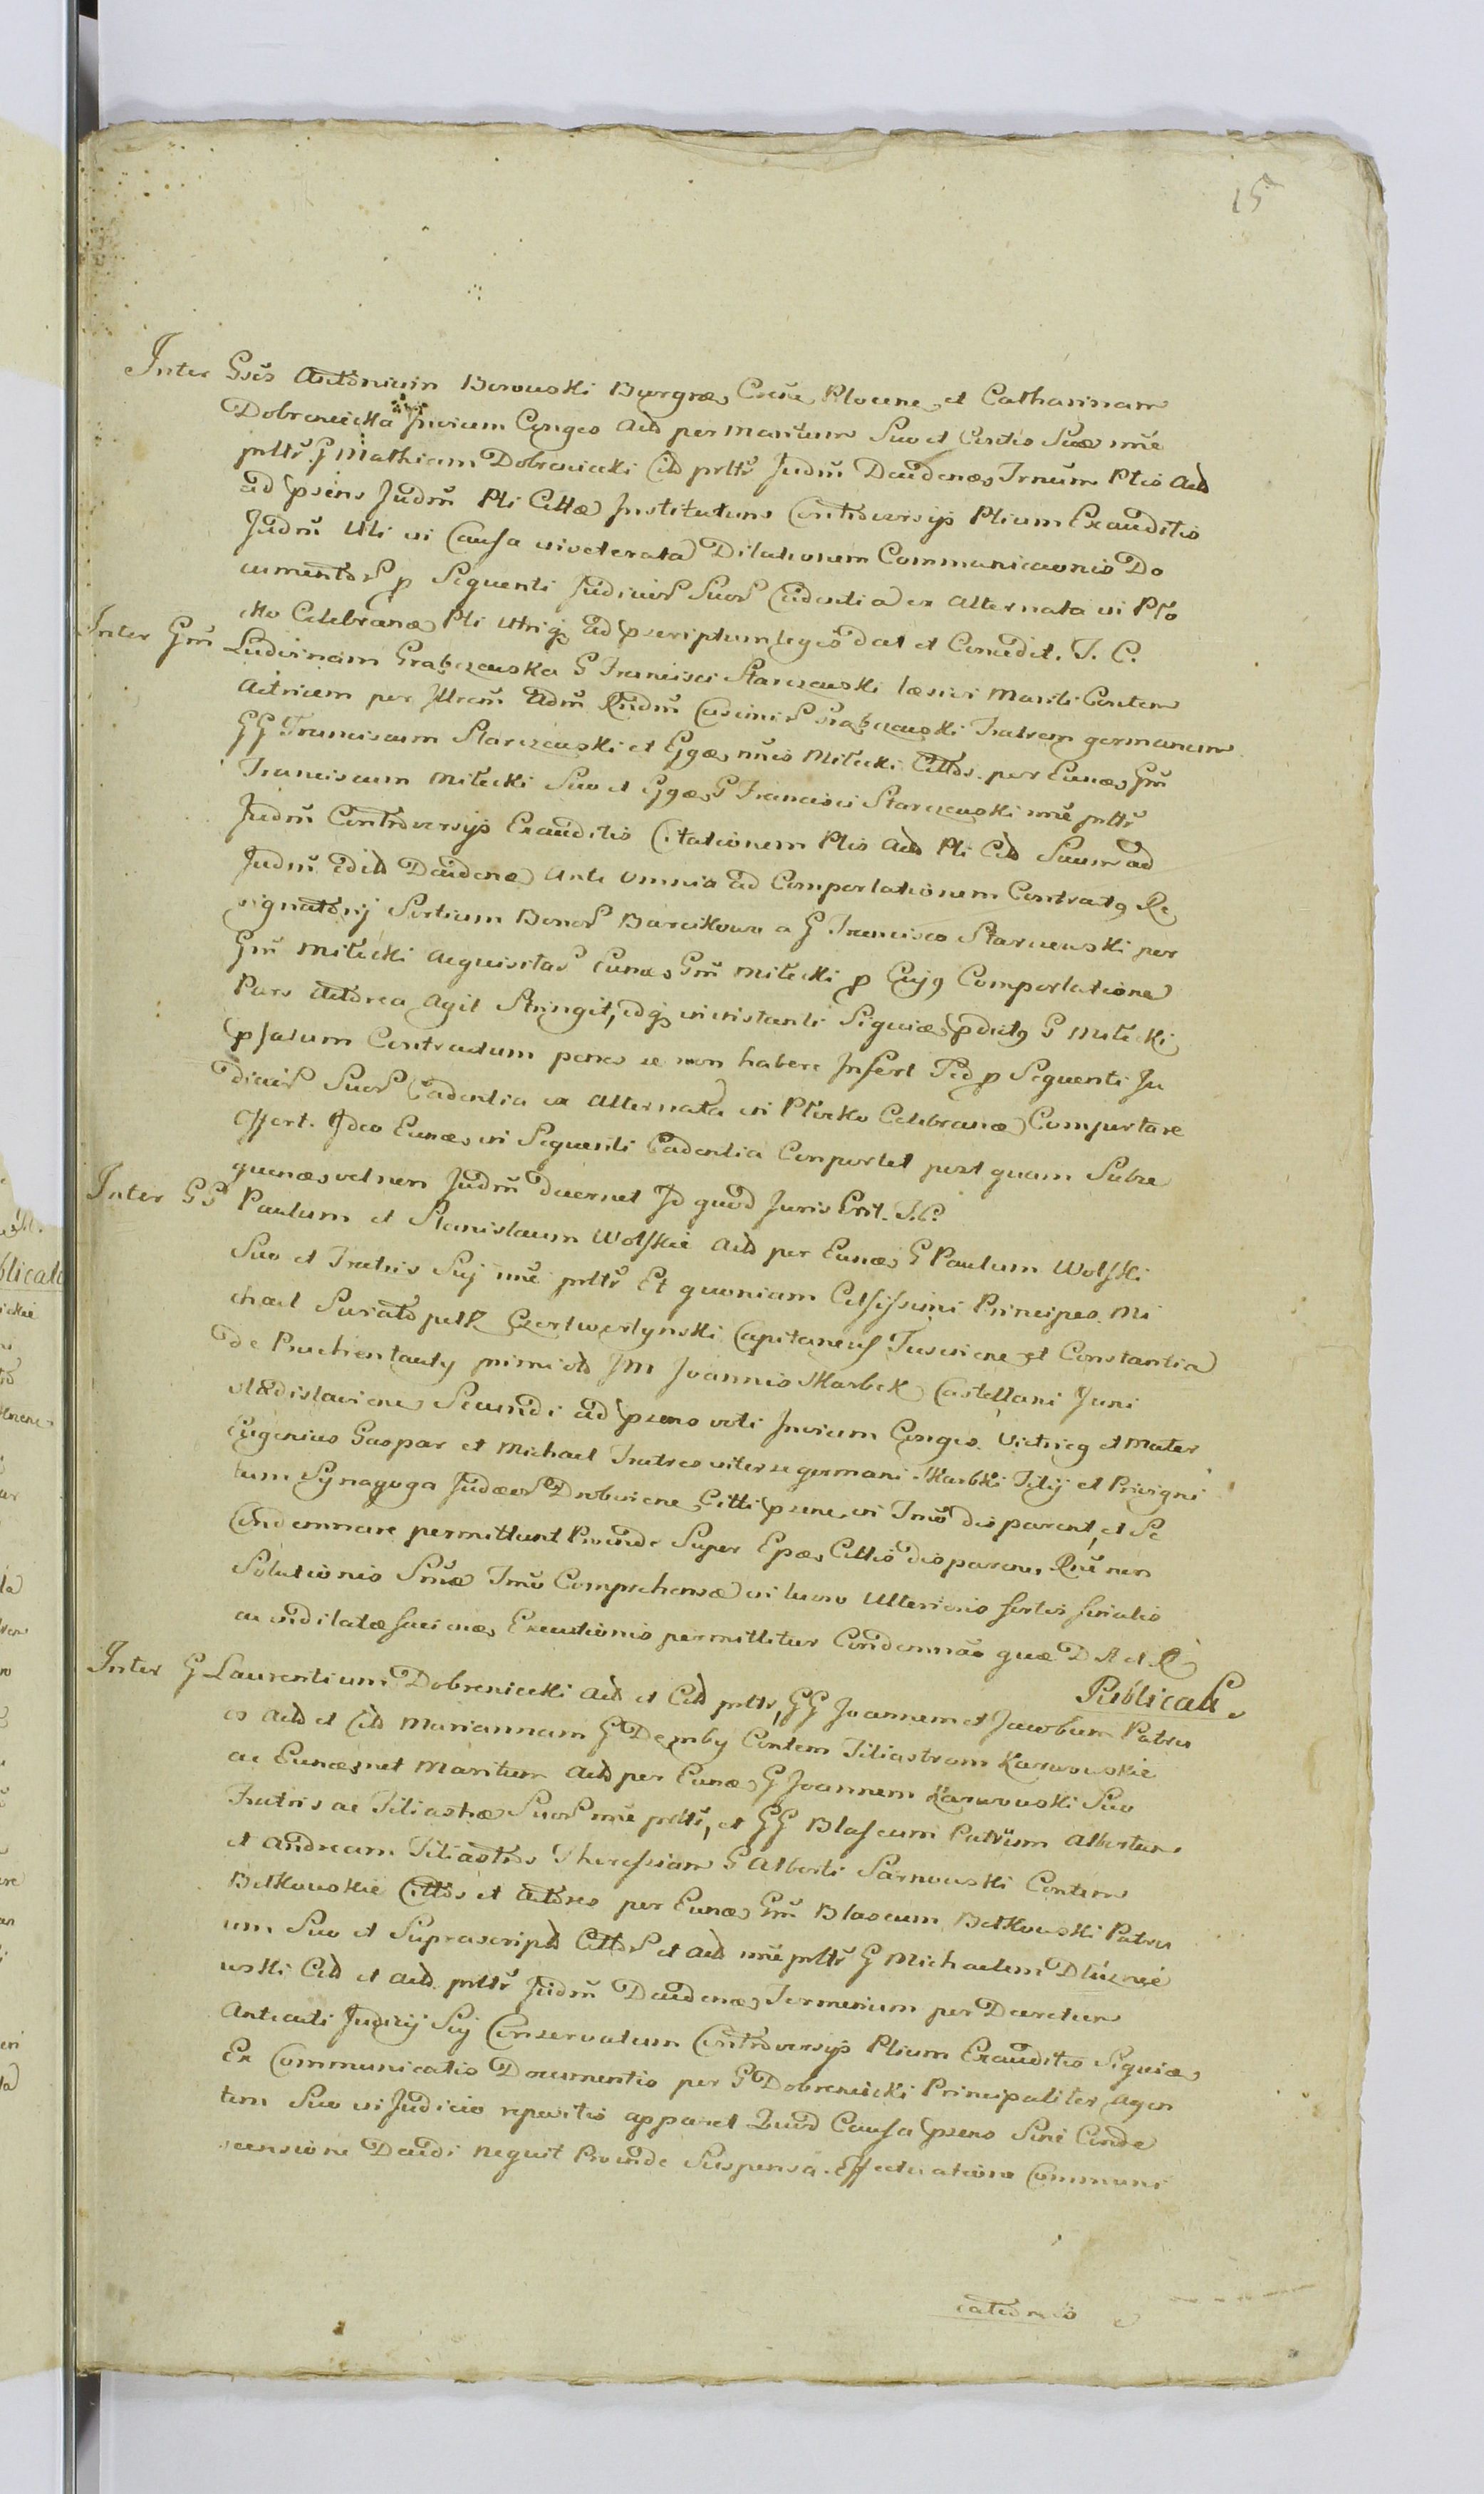 15
Inter Gsos Antonium Borowski Burgrae Crense Plocene et Catharinam
Dobrzenicka Invicem Conges Actd per Maritum Suo et Consortis Suae nnē
prltr G Mathiam Dobrzenicki Citd prltr Judm̄ Decidenae Trnum Ptis Actd
ad psens Judm̄ Pti Cittae Institutum Controversijs Ptium Exauditis
Judm̄ Uti in Causa inveterata Dilationem Communicaonis Do
cumentor p Sequenti Judicior Suor Cadentia ex Alternata in Pło
cko Celebranae Pti Utriq ad pscriptum legis dat et Concedit. T. C.
Inter Gm̄ Ludvinam Grabczewska G Francisci Starczewski laesivi Mariti Contem
Actricem per Illrem Adm̄ Rndm̄ Casimir Grabczewski Fratrem germanum
GG Franciscum Starczewski et Ggae nnis Miłecki Cittos per Eunae Gm̄
Franciscum Miłecki Suo et Ggae G Francisci Starczewski nnē prltr
Judm̄ Controversijs Exauditis Citationem Ptis Actd Pti Citd Suum ad
Judm̄ edit Decidenae Ante Omnia ad Comportationem Contractq Re
signatorij Sortium Bonor Barcikowo a G Francisco Starczewski per
Gm̄ Miłecki Acquisitar Eunae Gm̄ Miłecki p Cujq Comportatione
Pars Actorea Agit Stringit, idq in instanti Siquiae pdictq G Miłecki
pfatum Contractum penes se non habere Infert Sed p Sequenti Ju
dicior Suor Cadentia ex Alternata in Płocko Celebranae Comportare
Offert. Ideo Eunae in Sequenti Cadentia Comportet post quam Subse
quenae vel non Judm̄ decernet Id quod Juris Erit. T. C.
Inter GG Paulum et Stanislaum Wolskie Actd per Eunae G Paulum Wolski
Suo et Fratris Suj nnē prltr Et quoniam Celsissimi Principes Mi
chael Swiatopełk Czertwertynski Capitaneus Dusiene et Constantia
de Pruchentauly primi vtd JM Joannis Skarbek Castellani Juni
vladislaviene Secundi ad psens voti Invicem Conges Vitricq et Mater
Eugenius Gaspar et Michael Fratres inter se germani Skarbki Filij et Privigni
tum Synagoga Judaeor Drobinene Citti psene in Tmō disparent, et Se
Condemnare permittunt Proinde Super Epae Cittis disparene Rne non
Solutionis Smae Tmō Comprehensae in lucro Ulterioris fortis serialis
ac indilatae faciendae Executionis permittitur Condemnao quae D A et R
Publicat
Inter G Laurentium Dobrzenicki Actd et Citd prltr, GG Joannem et Jacobum Patru
os Actd et Citd Mariannam G Demby Contem Filiastram Karwowskie
ac Eunaemet Maritum Actd per Eunae G Joannem Karwowski Suo
Fratris ac Filiastrae Suor nnē prltr, et GG Blaseum Patruum Albertum
et Andream Filiastros Theressiam G Alberti Sarnowski Contem
Betkowskie Cittos et Actores per Eunae Gm̄ Blaseum Betkowski Patru
um Suo et Suprascript Cittor et Actd nnē prltr G Michaelem Dłużnie
wski Citd et Actd prltr Judm̄ Decidenae Terminum per Decretum
Anteacti Judicij Suj Conservatum Controversijs Ptium Exauditis Siquiae
Ex Communicatis Documentis per G Dobrzenicki Principaliter Agen
tem Suo in Judicio repositis apparet Quod Causa psens Sine Conde
scensione Decidi nequit Proinde Suspensa Effectuatione Communi
cationis